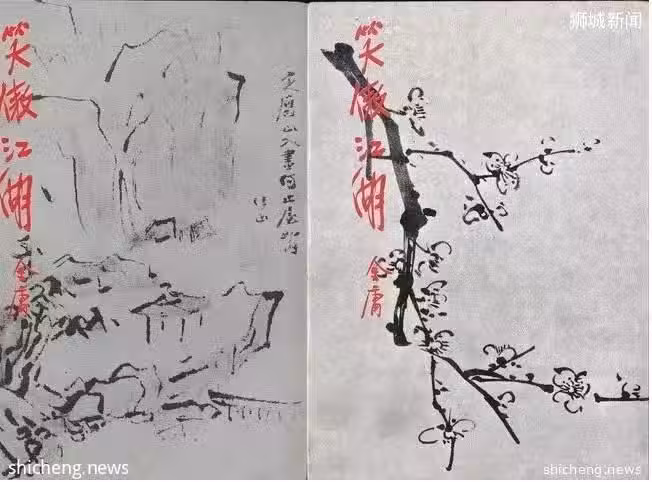 笑傲江湖
金庸
天厓山人書
倚山
笑傲江湖
金庸
狮城新闻
shicheng.news
shicheng.news